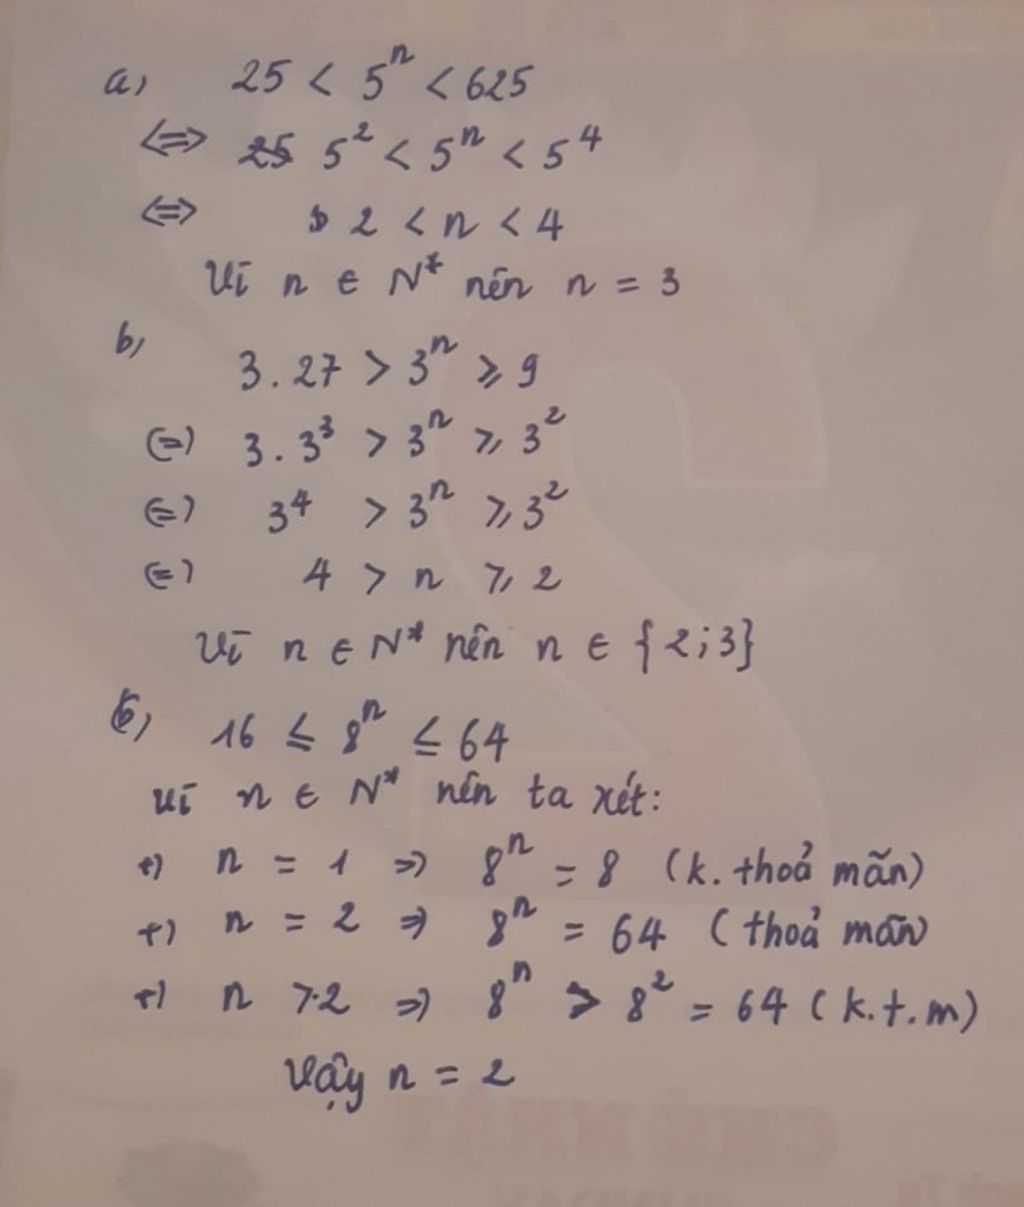 a, 25 < 5ⁿ < 625
<=> 5² < 5ⁿ < 5⁴
<=> 2 < n < 4
Vì n ∈ N* nên n = 3
b, 3.27 > 3ⁿ ≥ 9
(=) 3.3³ > 3ⁿ ≥ 3²
(=) 3⁴ > 3ⁿ ≥ 3²
(=) 4 > n ≥ 2
Vì n ∈ N* nên n ∈ {2;3}
16 ≤ 8ⁿ ≤ 64
Vì n ∈ N* nên ta xét:
+) n = 1 => 8ⁿ = 8 (k. thoả mãn)
+) n = 2 => 8ⁿ = 64 (thoả mãn)
+) n > 2 => 8ⁿ > 8² = 64 (k.t.m)
Vậy n = 2
CHỦ NHẬT
SUNDAY